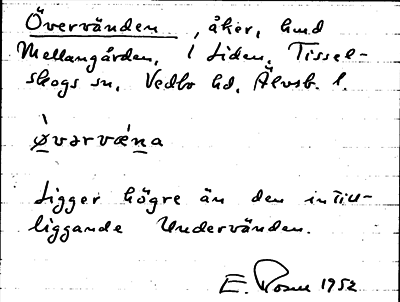 Övervänden, åker, hmd
Mellangården, i Liden, Tissel-
skogs sn, Vedbo hd, Älvsb. l.
ø̀vərvǽna
Ligger högre än den intill-
liggande Undervänden.
E. Rosen 1952